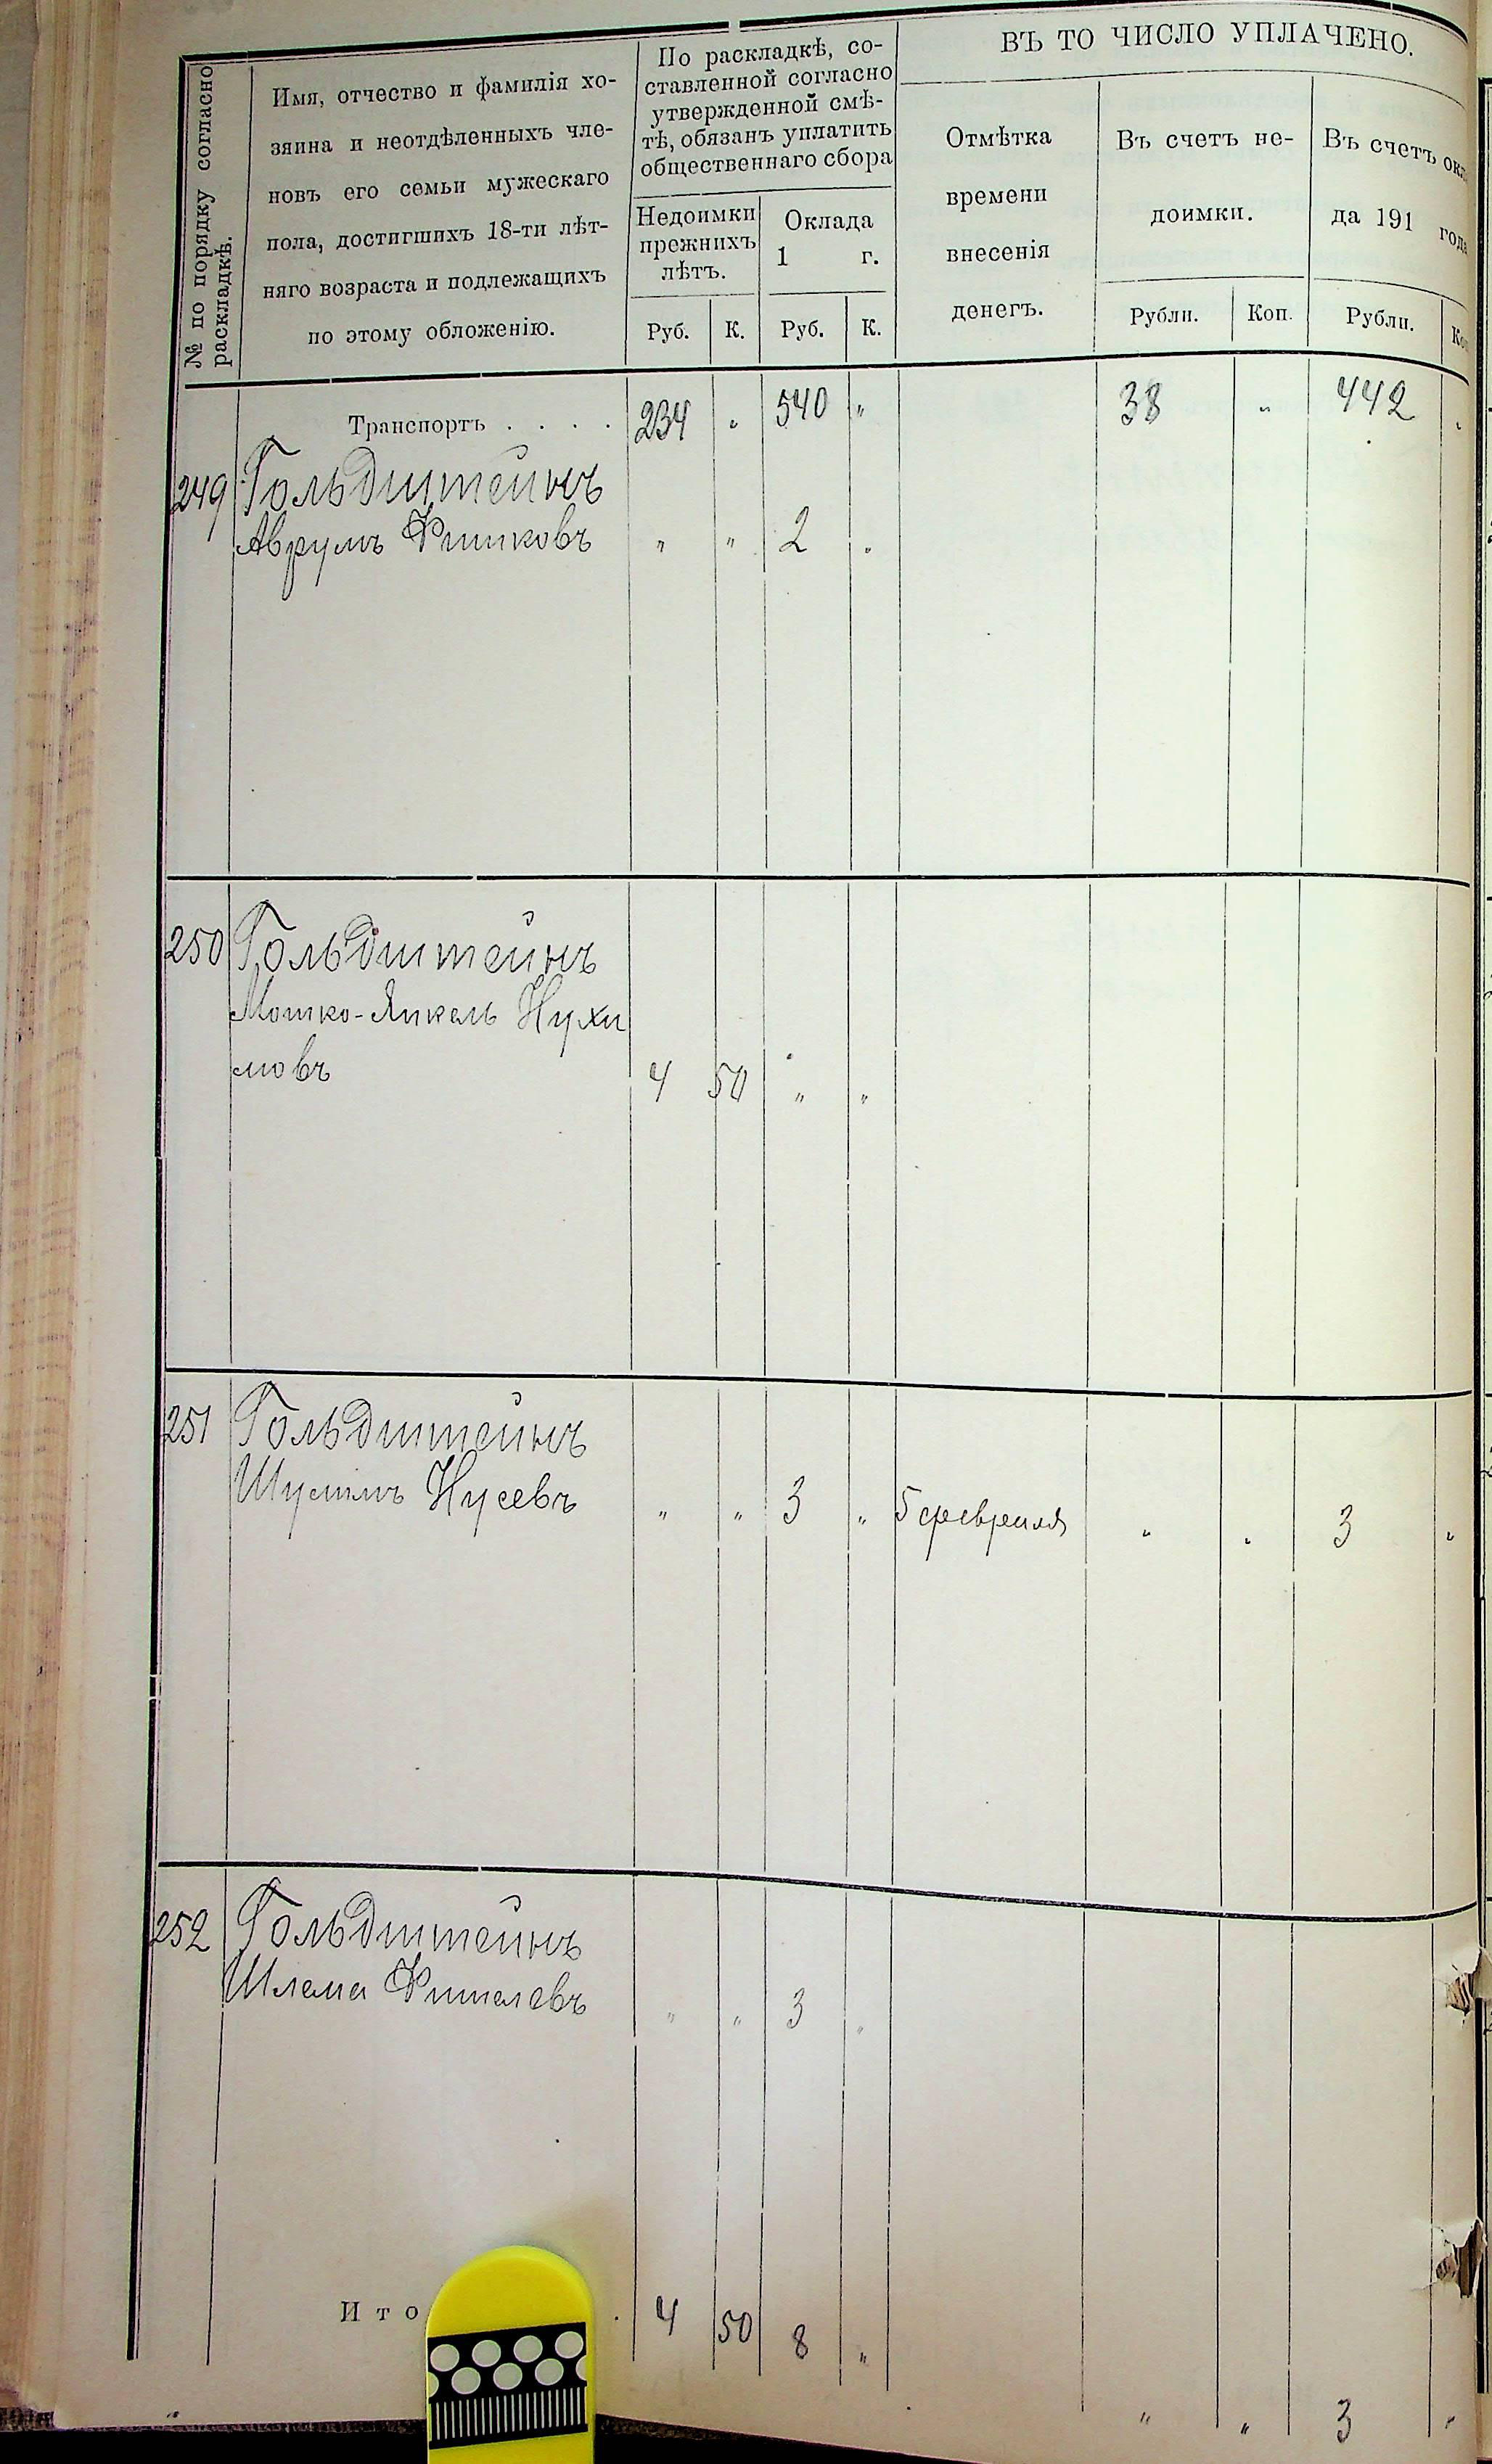 № по порядку согласно
раскладкѣ.
Имя, отчество и фамилія хо-
зяина и неотдѣленныхъ чле-
новъ его семьи мужескаго
пола, достигшихъ 18-ти лѣт-
няго возраста и подлежащихъ
по этому обложенію.
По раскладкѣ, со-
ставленной согласно
утвержденной смѣ-
тѣ, обязанъ уплатить
общественнаго сбора
Недоимки
прежнихъ
лѣтъ.
Оклада
1 г.
Руб. К. Руб. К.
ВЪ ТО ЧИСЛО УПЛАЧЕНО.
Отмѣтка
времени
внесенія
денегъ.
Въ счетъ не-
доимки.
Рубли. Коп.
Въ счетъ окл
да 191 года
Рубли. Коп
Транспортъ . . . . 234 „ 540 „ 38 „ 442 „
249 Гольдштейнъ
Аврумъ Фишковъ „ „ 2 „
250 Гольдштейнъ
Мошко-Янкель Нухи
мовъ 4 50 „ „
251 Гольдштейнъ
Шулимъ Нусевъ „ „ 3 „ 5 февраля „ „ 3 „
252 Гольдштейнъ
Шлема Фишелевъ „ „ 3 „
Ито . 4 50 8 „ „ „ 3 „